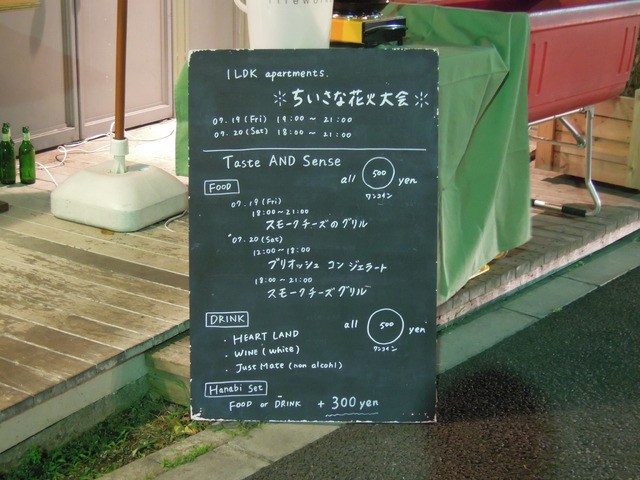 1LDK apartments.
※ちいさな花火大会※
07.19 (Fri) 19:00～21:00
07.20 (Sat) 18:00～21:00
Taste AND Sense
FOOD
all 500 yen
ワンコイン
07.19 (Fri)
18:00～21:00
スモークチーズのグリル
07.20 (Sat)
12:00～18:00
ブリオッシュ コン ジェラート
18:00～21:00
スモークチーズグリル
DRINK
all 500 yen
ワンコイン
・HEART LAND
・WINE (white)
・Just Mate (non alcohl)
Hanabi Set
FOOD or DRINK + 300 yen